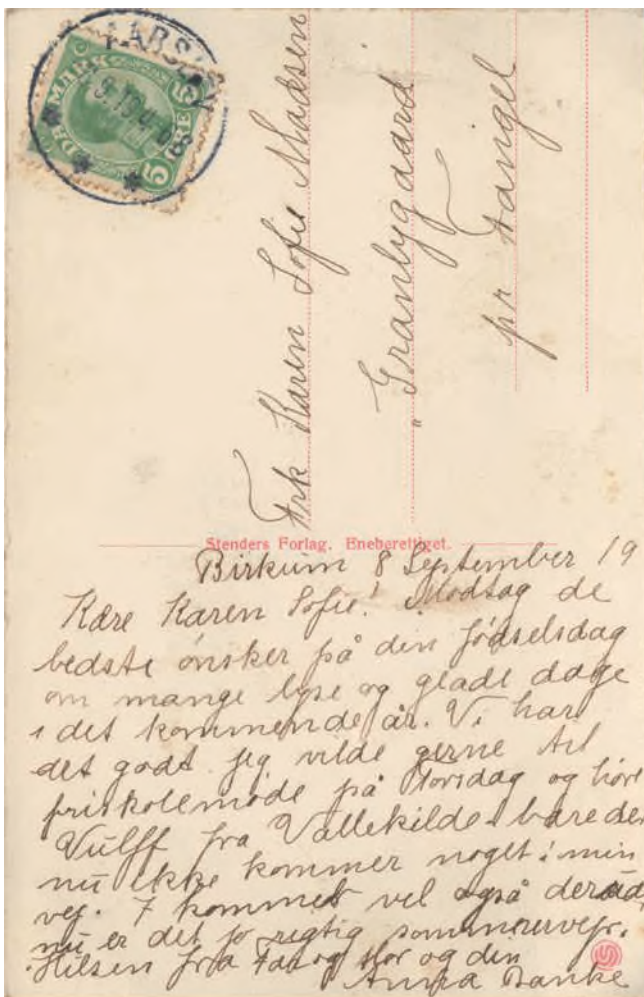 DANMARK
5 ØRE
Frk Karen Sofie Madsen
"Granlygaard
pr Fangel
Stenders Forlag. Eneberettiget.
Birkum 8 September 19
Kære Karen Sofie! Modtag de
bedste ønsker på din fødselsdag
om mange lyse og glade dage
i det kommende år. Vi har
det godt. jeg vilde gerne til
friskolemøde på Torsdag og høre
Vulff fra Vallekilde bare der
nu ikke kommer noget i min
vej. I kommer vel også derud,
nu er det jo rigtig sommervejr.
Hilsen fra Far og Mor og din
Anna Banke